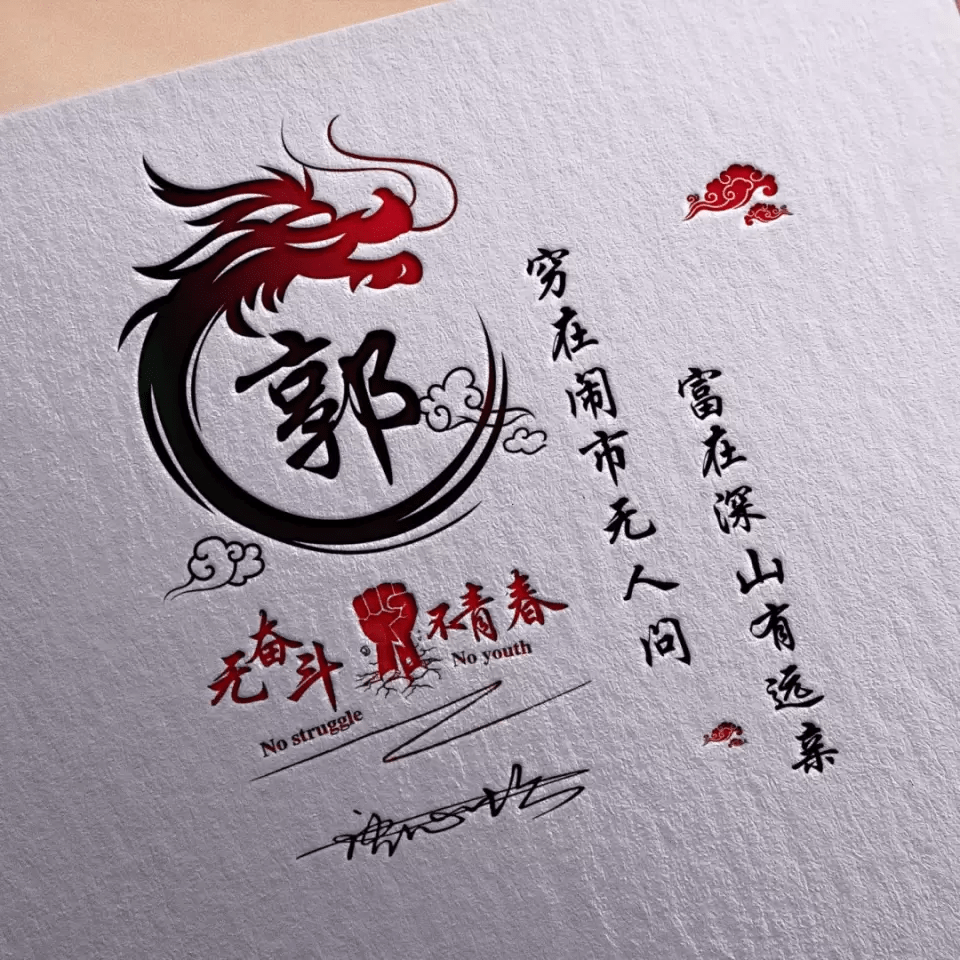 郭
无奋斗 不青春
No struggle
No youth
穷在闹市无人问
富在深山有远亲